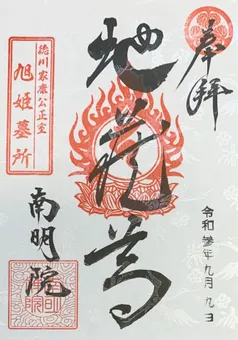 奉拝
令和参年九月九日
地蔵尊
徳川家康公正室
旭姫墓所
南明院